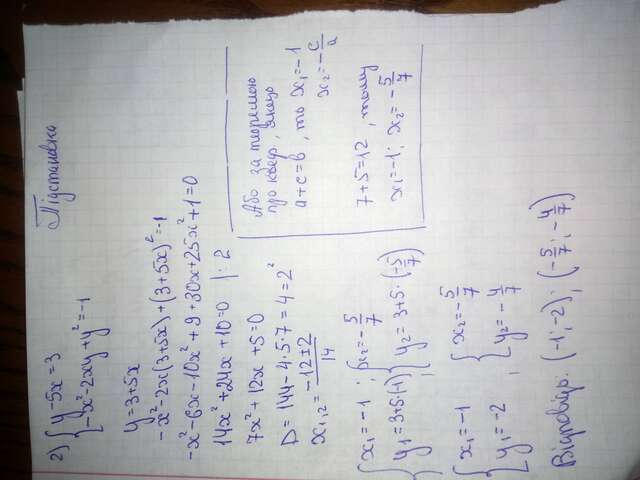 Підстановка
2) { y-5x=3
-x²-2xy+y²=-1
y=3+5x
-x²-2x(3+5x)+(3+5x)²=-1
-x²-6x-10x²+9+30x+25x²+1=0
14x²+24x+10=0 |:2
7x²+12x+5=0
D=144-4·5·7=4=2²
x₁,₂=(-12±2)/14
{ x₁=-1 ; { x₂=-5/7
y₁=3+5(-1) y₂=3+5·(-5/7)
{ x₁=-1 , { x₂=-5/7
y₁=-2 y₂=-4/7
Відповідь: (-1;-2); (-5/7;-4/7)
Або за теоремою
про коеф., якщо
a+c=b, то x₁=-1
x₂=-c/a
7+5=12, тому
x₁=-1; x₂=-5/7